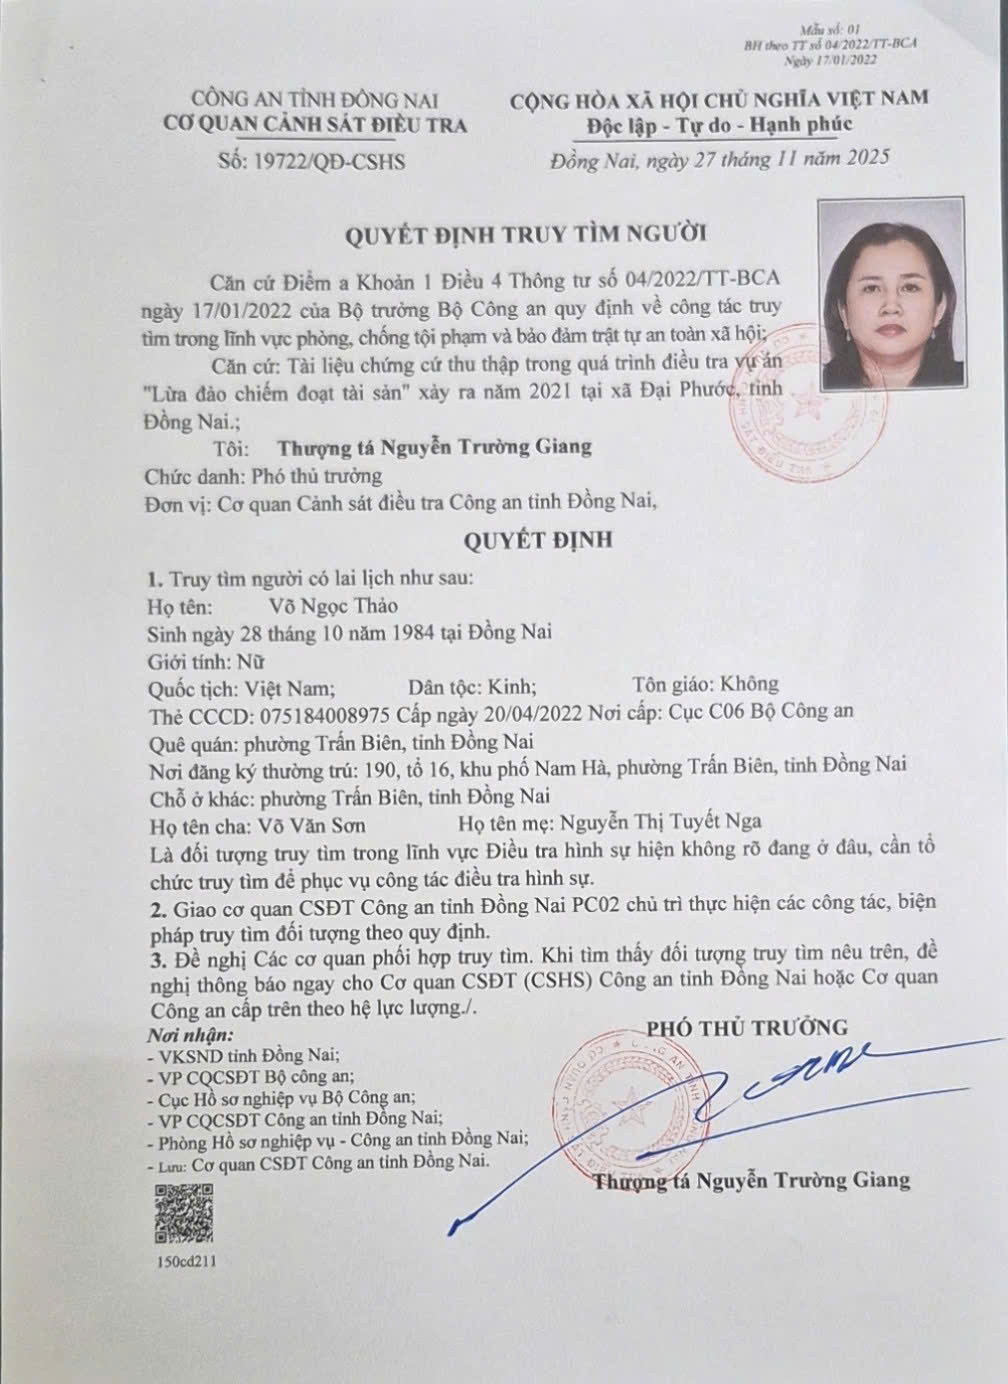 Mẫu số: 01
BH theo TT số 04/2022/TT-BCA
Ngày 17/01/2022
CÔNG AN TỈNH ĐỒNG NAI
CƠ QUAN CẢNH SÁT ĐIỀU TRA
Số: 19722/QĐ-CSHS
CỘNG HÒA XÃ HỘI CHỦ NGHĨA VIỆT NAM
Độc lập - Tự do - Hạnh phúc
Đồng Nai, ngày 27 tháng 11 năm 2025
QUYẾT ĐỊNH TRUY TÌM NGƯỜI
Căn cứ Điểm a Khoản 1 Điều 4 Thông tư số 04/2022/TT-BCA
ngày 17/01/2022 của Bộ trưởng Bộ Công an quy định về công tác truy
tìm trong lĩnh vực phòng, chống tội phạm và bảo đảm trật tự an toàn xã hội;
Căn cứ: Tài liệu chứng cứ thu thập trong quá trình điều tra vụ án
"Lừa đảo chiếm đoạt tài sản" xảy ra năm 2021 tại xã Đại Phước, tỉnh
Đồng Nai.;
Tôi: Thượng tá Nguyễn Trường Giang
Chức danh: Phó thủ trưởng
Đơn vị: Cơ quan Cảnh sát điều tra Công an tỉnh Đồng Nai,
QUYẾT ĐỊNH
1. Truy tìm người có lai lịch như sau:
Họ tên: Võ Ngọc Thảo
Sinh ngày 28 tháng 10 năm 1984 tại Đồng Nai
Giới tính: Nữ
Quốc tịch: Việt Nam; Dân tộc: Kinh; Tôn giáo: Không
Thẻ CCCD: 075184008975 Cấp ngày 20/04/2022 Nơi cấp: Cục C06 Bộ Công an
Quê quán: phường Trấn Biên, tỉnh Đồng Nai
Nơi đăng ký thường trú: 190, tổ 16, khu phố Nam Hà, phường Trấn Biên, tỉnh Đồng Nai
Chỗ ở khác: phường Trấn Biên, tỉnh Đồng Nai
Họ tên cha: Võ Văn Sơn Họ tên mẹ: Nguyễn Thị Tuyết Nga
Là đối tượng truy tìm trong lĩnh vực Điều tra hình sự hiện không rõ đang ở đâu, cần tổ
chức truy tìm để phục vụ công tác điều tra hình sự.
2. Giao cơ quan CSĐT Công an tỉnh Đồng Nai PC02 chủ trì thực hiện các công tác, biện
pháp truy tìm đối tượng theo quy định.
3. Đề nghị Các cơ quan phối hợp truy tìm. Khi tìm thấy đối tượng truy tìm nêu trên, đề
nghị thông báo ngay cho Cơ quan CSĐT (CSHS) Công an tỉnh Đồng Nai hoặc Cơ quan
Công an cấp trên theo hệ lực lượng./.
Nơi nhận:
- VKSND tỉnh Đồng Nai;
- VP CQCSĐT Bộ công an;
- Cục Hồ sơ nghiệp vụ Bộ Công an;
- VP CQCSĐT Công an tỉnh Đồng Nai;
- Phòng Hồ sơ nghiệp vụ - Công an tỉnh Đồng Nai;
- Lưu: Cơ quan CSĐT Công an tỉnh Đồng Nai.
150cd211
PHÓ THỦ TRƯỞNG
Thượng tá Nguyễn Trường Giang